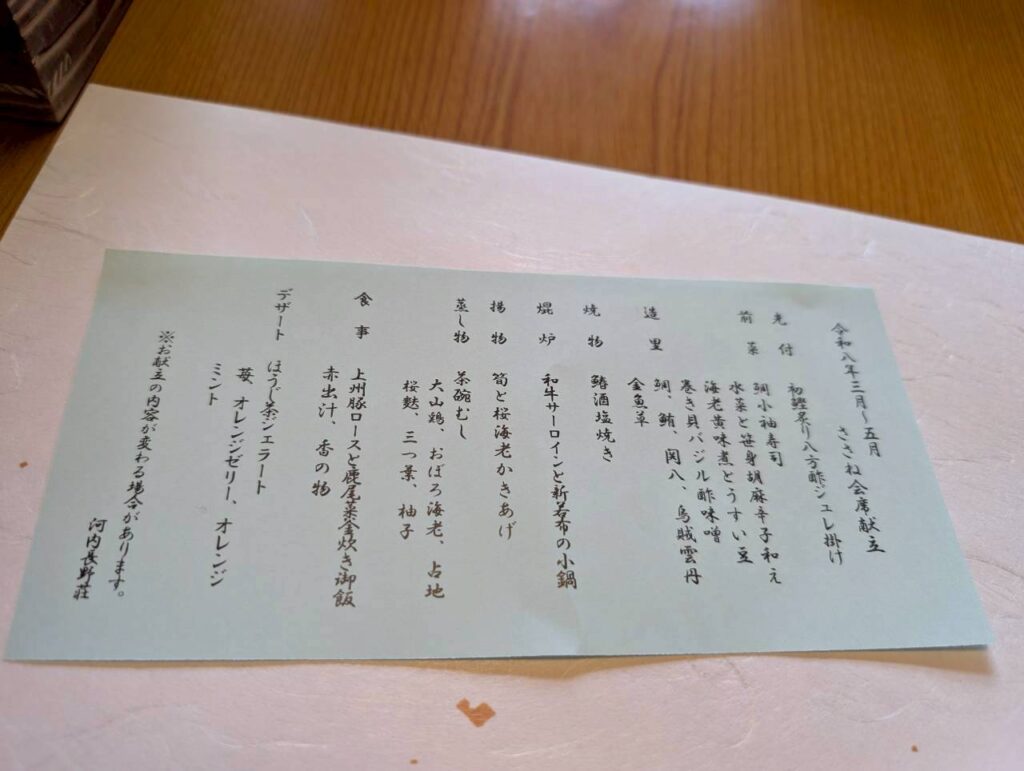 令和八年三月～五月
ささね会席献立
先付 初鰹炙り八方酢ジュレ掛け
前菜 鯛小袖寿司
水菜と笹身胡麻辛子和え
海老黄味煮とうすい豆
巻き貝バジル酢味噌
造里 鯛、鮪、間八、烏賊雲丹
金魚草
焼物 鰆酒塩焼き
焜炉 和牛サーロインと新若布の小鍋
揚物 筍と桜海老かきあげ
蒸し物 茶碗むし
大山鶏、おぼろ海老、占地
桜麩、三つ葉、柚子
食事 上州豚ロースと鹿尾菜釜炊き御飯
赤出汁、香の物
デザート ほうじ茶ジェラート
苺、オレンジゼリー、オレンジ
ミント
※お献立の内容が変わる場合があります。
河内長野荘